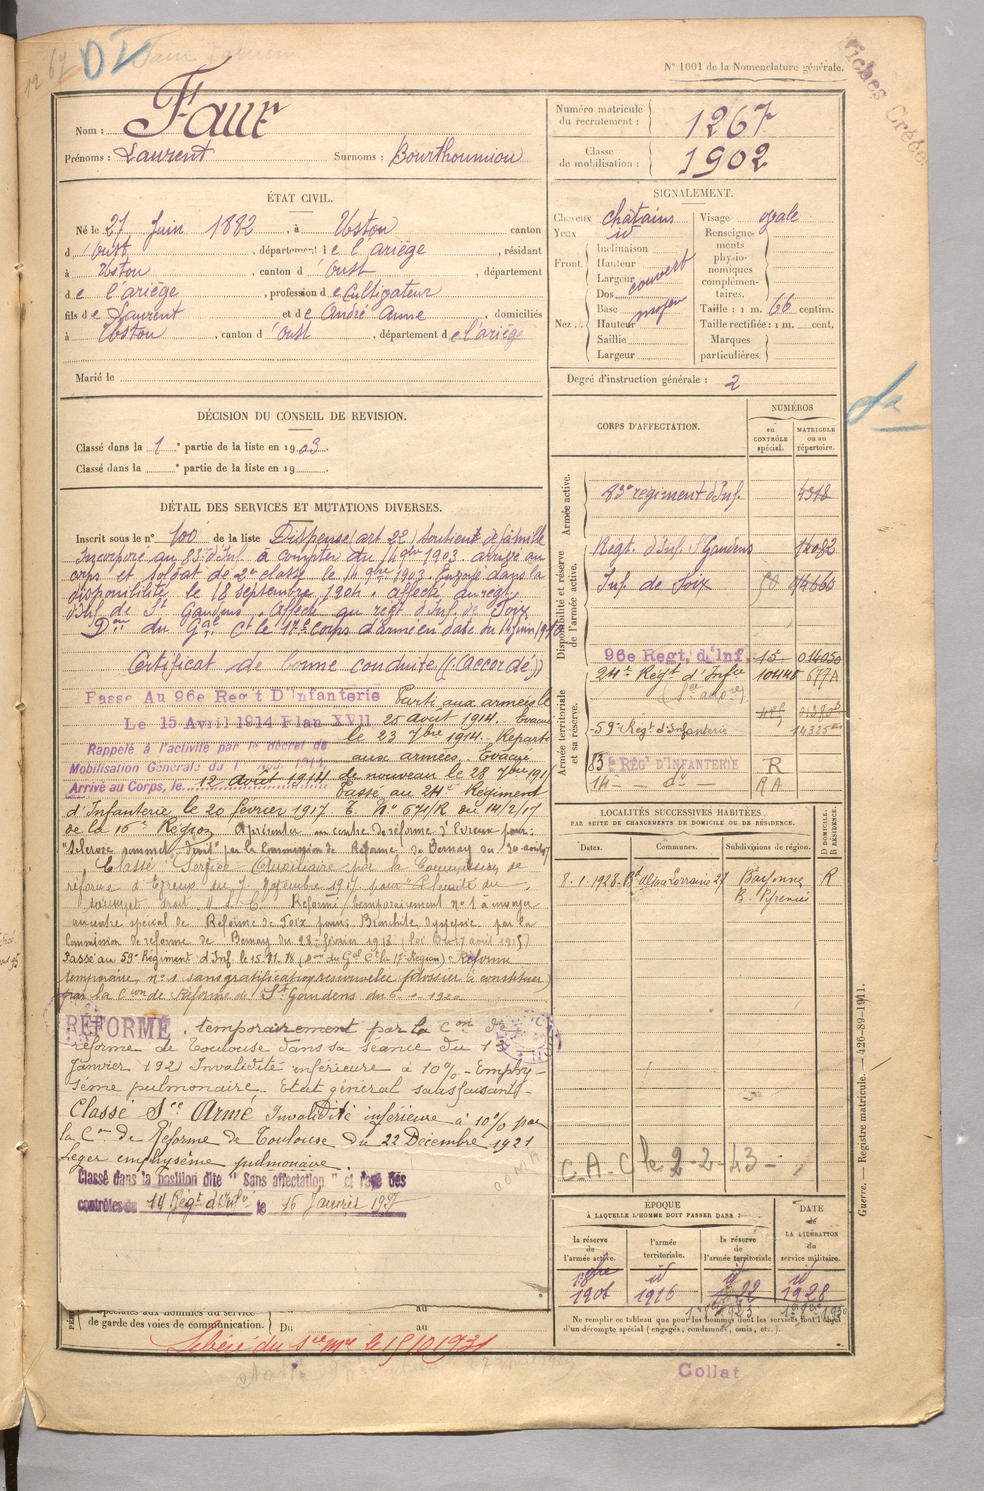 N° 1001 de la Nomenclature générale.
Fiches
Nom : Faur
Prénoms : Laurent Surnoms : Bourthoumiou
Numéro matricule du recrutement : 1267
Classe de mobilisation : 1902
ÉTAT CIVIL.
Né le 27 Juin 1882, à Ustou canton
d'Oust, département de l'ariège, résidant
à Ustou, canton d'Oust, département
de l'ariège, profession de Cultivateur
fils de Laurent et de André Anne, domiciliés
à Ustou, canton d'Oust, département de l'ariège
Marié le
SIGNALEMENT.
Cheveux chatains
Yeux id
Front Inclinaison
Hauteur
Largeur couvert
Nez Dos
Base moyen
Hauteur
Saillie
Largeur
Visage ovale
Renseignements physionomiques complémentaires.
Taille : 1 m. 66 centim.
Taille rectifiée : 1 m. cent.
Marques particulières.
Degré d'instruction générale : 2
DÉCISION DU CONSEIL DE REVISION.
Classé dans la 1e partie de la liste en 1903.
Classé dans la e partie de la liste en 19
DÉTAIL DES SERVICES ET MUTATIONS DIVERSES.
Inscrit sous le n° 100 de la liste Dispensé (art 22) soutient de famille
Incorporé au 83e d'Inf. à compter du 14 9bre 1903. arrivé au
corps et soldat de 2e classe le 14 9bre 1903. Envoyé dans la
disponibilité le 18 septembre 1904. affecté au régt
d'Inf de St Gaudens. Affecté au régt d'Inf. de Foix
Don du Gal Ct le 17e Corps d'armée en date du 14 juin 1910
Certificat de bonne conduite ((Accordé))
Passe Au 96e Reg't D'Infanterie
Le 15 Avril 1914 Plan XVII
Parti aux armées le
25 août 1914. Evacué
le 23 7bre 1914. Reparti
Rappelé à l'activité par le décret de
Mobilisation Générale du 1er Août 1914
Arrivé au Corps, le 12 août 1914
aux armées. Evacué
de nouveau le 28 7bre 191
Passé au 24e Régiment
d'Infanterie le 20 février 1917 T. N° 571/R du 14/2/17
de la 16e Région A présenter au centre de réforme d'Evreux pour :
"Sclérose sommet droit" par la Commission de Réforme de Bernay du 30 août 17
Classé Service Auxiliaire par la Commission de
réforme d'Evreux du 7 Septembre 1917 pour
sommet droit Réformé temporairement n° 1 à envoyer
au centre spécial de Réforme de Foix pour : Bronchite par la
Commission de réforme de Bernay du février 1918
Passé au 59e Régiment d'Inf. le 15.11.18 (Don du Gal Ct la 17e Région) Réforme
temporaire n° 1 sans gratification renouvelée (dossier à constituer)
par la Con de Réforme de St Gaudens du 6-1-1920
RÉFORMÉ temporairement par la Con de
réforme de Toulouse dans sa séance du 13
Janvier 1921 Invalidité inférieure à 10% - Emphy-
sème pulmonaire. Etat général satisfaisant -
Classé Sce Armé Invalidité inférieure à 10% par
la Con de Réforme de Toulouse du 22 Décembre 1921
Léger emphysème pulmonaire.
Classé dans la position dite "Sans affectation" et rayé des
contrôles du 14 Régt d'Infie le 16 Janvier 192
CORPS D'AFFECTATION.
NUMÉROS
au CONTRÔLE spécial.
MATRICULE ou au répertoire.
Armée active.
83e régiment d'Inf. 4318
Disponibilité et réserve de l'armée active.
Régt. d'Inf. St Gaudens 14082
Inf. de Foix
96e Regt. d'Inf. 15 014050
24e Régt d'Infie 10448 677A
Armée territoriale et sa réserve.
59e Régt d'Infanterie
83e RÉGt D'INFANTERIE R
14 - do - RA
LOCALITÉS SUCCESSIVES HABITÉES
PAR SUITE DE CHANGEMENTS DE DOMICILE OU DE RÉSIDENCE.
Dates. Communes. Subdivisions de région. D DOMICILE. R RÉSIDENCE.
8.1.1928 Bd Alsace Lorraine 27 Bayonne R
B. Pyrénées
C.A.C le 2-2-43
ÉPOQUE
À LAQUELLE L'HOMME DOIT PASSER DANS :
la réserve de l'armée active.
l'armée territoriale.
la réserve de l'armée territoriale
DATE de LA LIBÉRATION du service militaire.
1906 id 1916 id 1922 id 1928
Ne remplir ce tableau que pour les hommes dont les services font l'objet
d'un décompte spécial (engagés, condamnés, omis, etc.).
spéciales aux hommes du service
de garde des voies de communication.
au
Du au
Libéré du sce Mre le 15/10 1931
Collat
Guerre. — Registre matricule. — 426-89-1911.